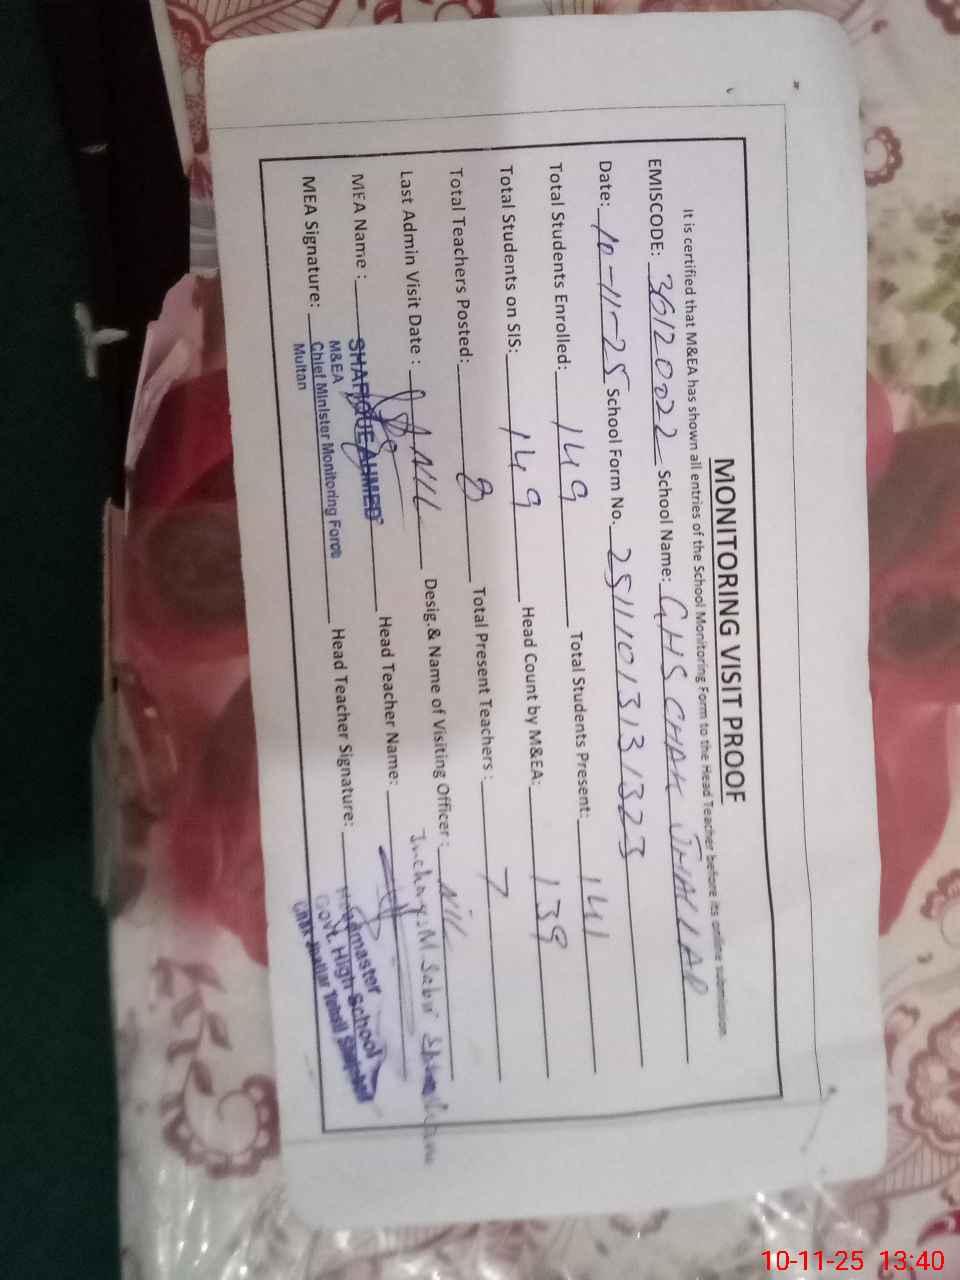 MONITORING VISIT PROOF
It is certified that M&EA has shown all entries of the School Monitoring Form to the Head Teacher before its online submission.
EMISCODE: 36120022 School Name: GHS CHAK
Date: 10-11-25 School Form No. 25111013131323
Total Students Enrolled: 149 Total Students Present: 141
Total Students on SIS: 149 Head Count by M&EA: 139
Total Teachers Posted: 8 Total Present Teachers: 7
Last Admin Visit Date: NIL Desig.& Name of Visiting Officer: NIL
Incharge M Sabir
MEA Name: SHAFIQUE AHMED Head Teacher Name:
M&EA
MEA Signature: Chief Minister Monitoring Force Head Teacher Signature:
Multan
Headmaster
Govt. High School
10-11-25 13:40